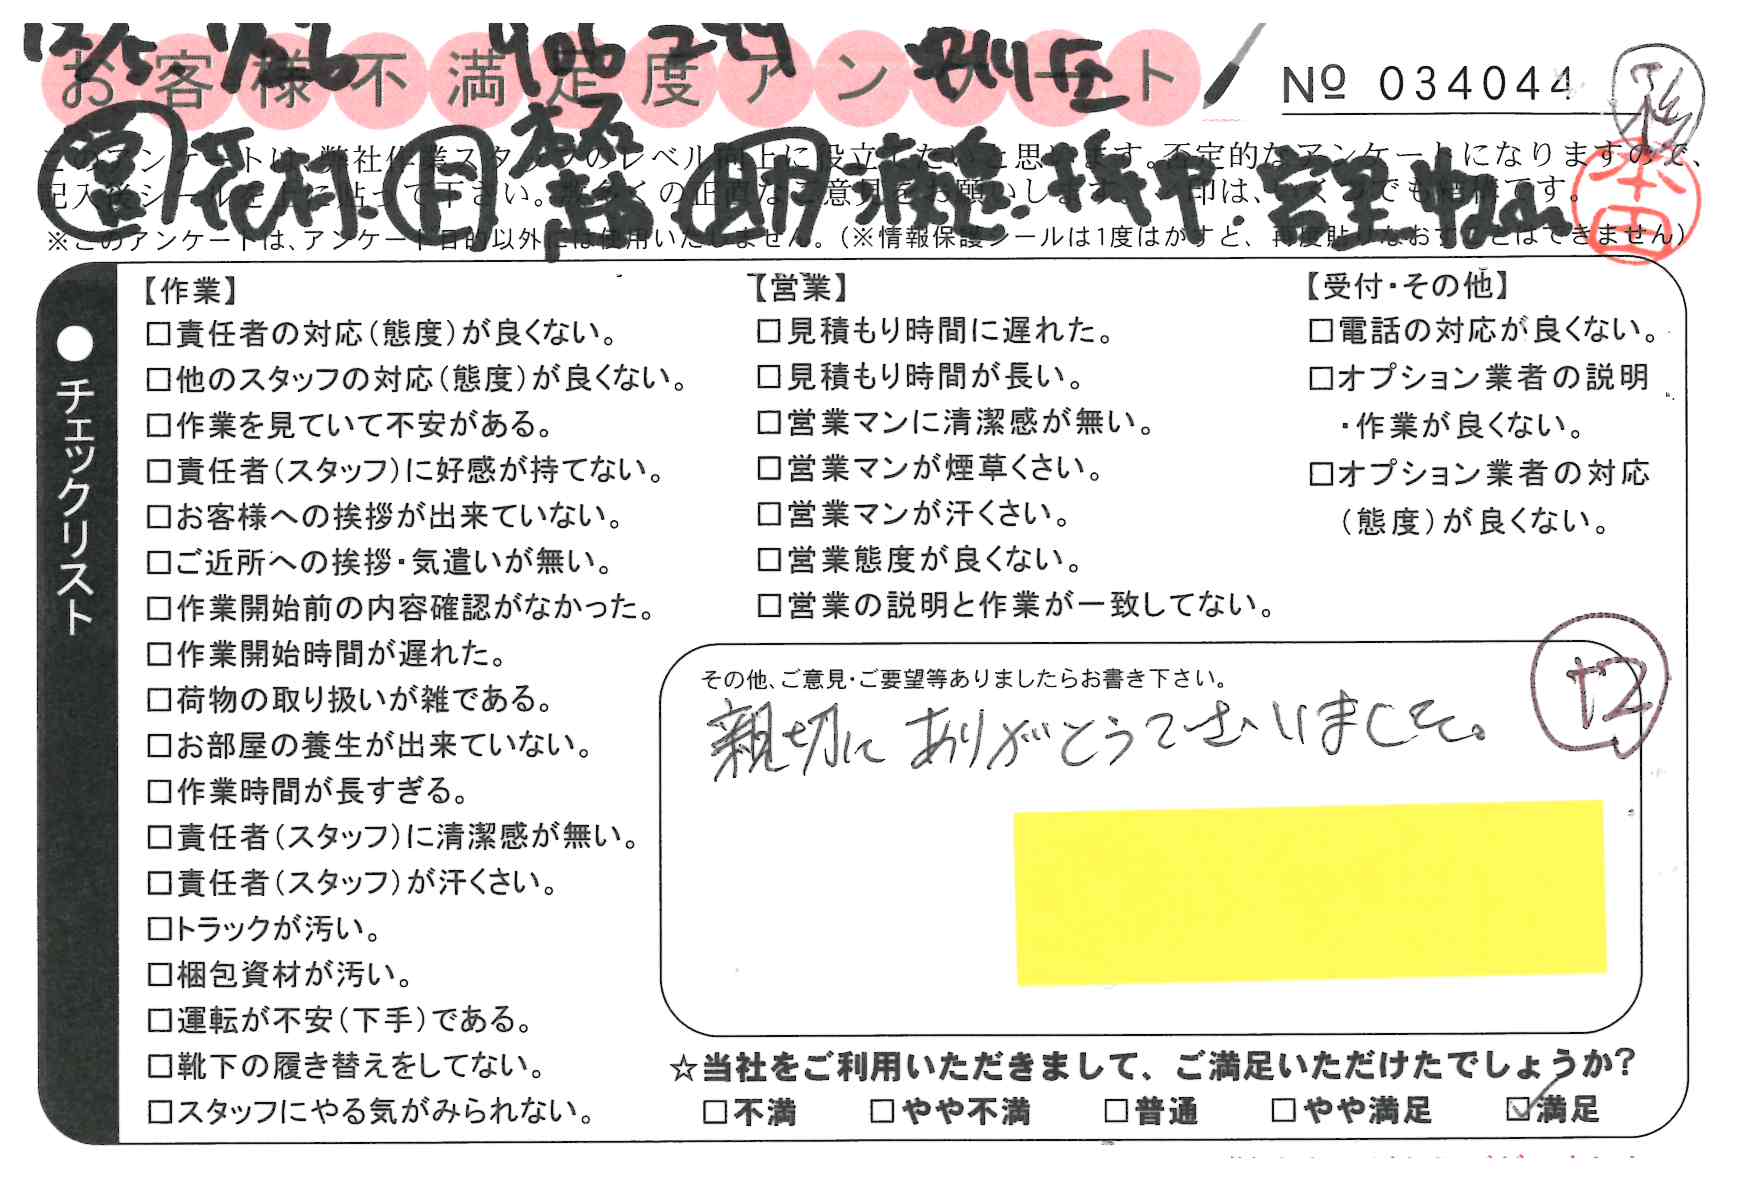 お客様不満足度アンケート
№ 034044
このアンケートは、弊社作業スタッフのレベル向上に役立てたいと思います。否定的なアンケートになりますので、
※このアンケートは、アンケート目的以外には使用いたしません。(※情報保護シールは1度はかすと、再度貼りなおすことはできません)
本田
●チェックリスト
【作業】
□責任者の対応(態度)が良くない。
□他のスタッフの対応(態度)が良くない。
□作業を見ていて不安がある。
□責任者(スタッフ)に好感が持てない。
□お客様への挨拶が出来ていない。
□ご近所への挨拶・気遣いが無い。
□作業開始前の内容確認がなかった。
□作業開始時間が遅れた。
□荷物の取り扱いが雑である。
□お部屋の養生が出来ていない。
□作業時間が長すぎる。
□責任者(スタッフ)に清潔感が無い。
□責任者(スタッフ)が汗くさい。
□トラックが汚い。
□梱包資材が汚い。
□運転が不安(下手)である。
□靴下の履き替えをしてない。
□スタッフにやる気がみられない。
【営業】
□見積もり時間に遅れた。
□見積もり時間が長い。
□営業マンに清潔感が無い。
□営業マンが煙草くさい。
□営業マンが汗くさい。
□営業態度が良くない。
□営業の説明と作業が一致してない。
【受付・その他】
□電話の対応が良くない。
□オプション業者の説明
・作業が良くない。
□オプション業者の対応
(態度)が良くない。
その他、ご意見・ご要望等ありましたらお書き下さい。
親切にありがとうございました。
☆当社をご利用いただきまして、ご満足いただけたでしょうか?
□不満 □やや不満 □普通 □やや満足 ☑満足